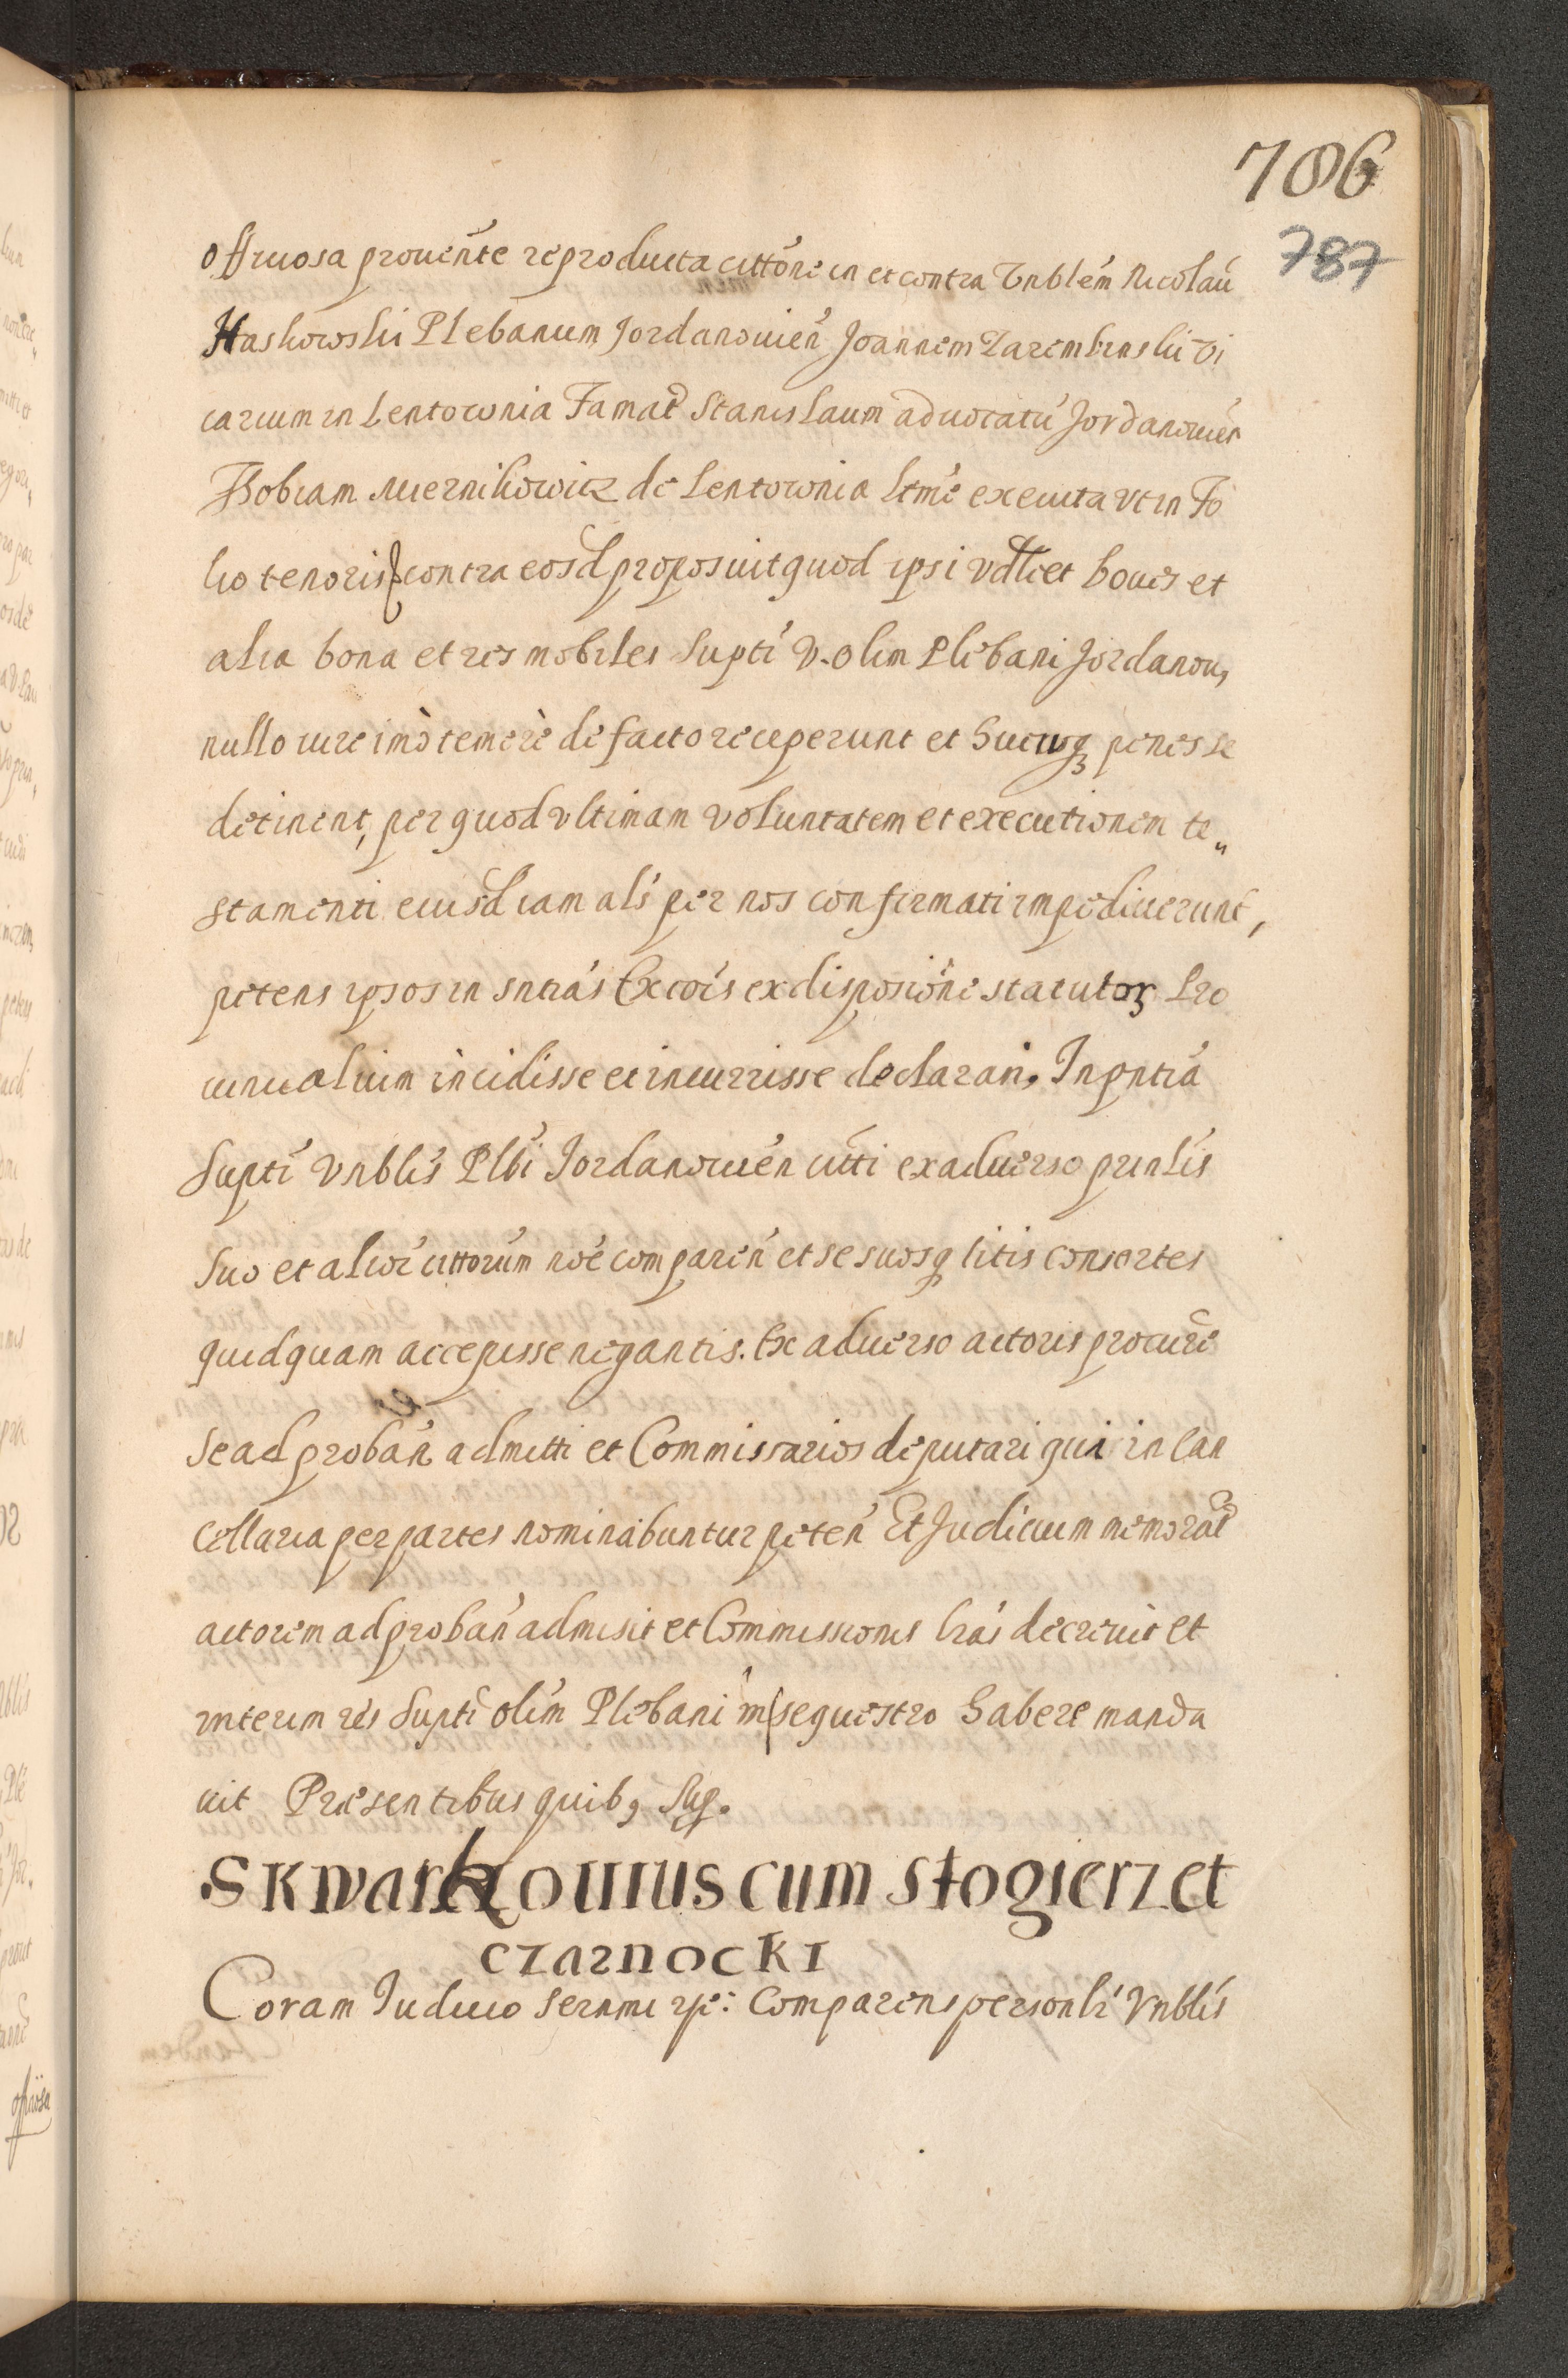 706
787
officiosa proueńte reproducta cittóne in et contra Vnblém Nicolaú
Haskowski Plebanum Jordanouień Joannem Zarembinski Vi
carium in Lentownia Famat Stanislaum aduocatú Jordanouień
Tsobiam Miernikowicz de Lentownia ltmé executa vt in Fo
lio tenoris contra eosd proposuit quod ipsi vdlt boues et
alia bona et res mobiles supti V. olim Plebani Jordanou,
nullo iure imò temerè de facto receperunt et hucusq penes se
detinent, per quod vltimam voluntatem et executionem te„
stamenti eiusd iam als per nos confirmati impediuerunt,
petens ipsos in sntiás Excois ex disposióne statutor Pro
uincialium incidisse et incurrisse declarari. In pntiá
supti Vnblis Plbi Jordanouień citti ex aduerso prinlis
suo et alior cittorum noé comparén et se suosq litis consortes
quidquam accepisse negantis. Ex aduerso actoris procure
se ad probań admitti et Commissarios deputari qui in Can
cellaria per partes nominabuntur petén Et Judicium memorat
actorem ad probań admisit et Commissionis lrás decreuit et
interim res supti olim Plebani in sequestro habere manda
uit Præsentibus quib, sup.
Skwarkouius cum Stogierz et
czarnocki
Coram Iudicio sernmi rp: Comparens personlr Vnblis